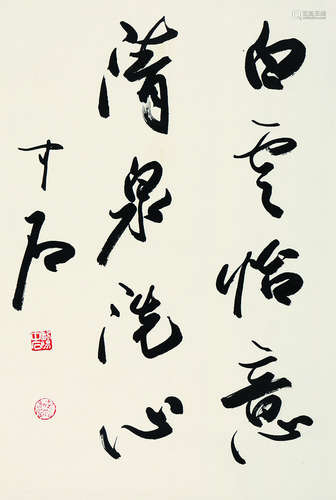 白云怡意
清泉洗心
中石